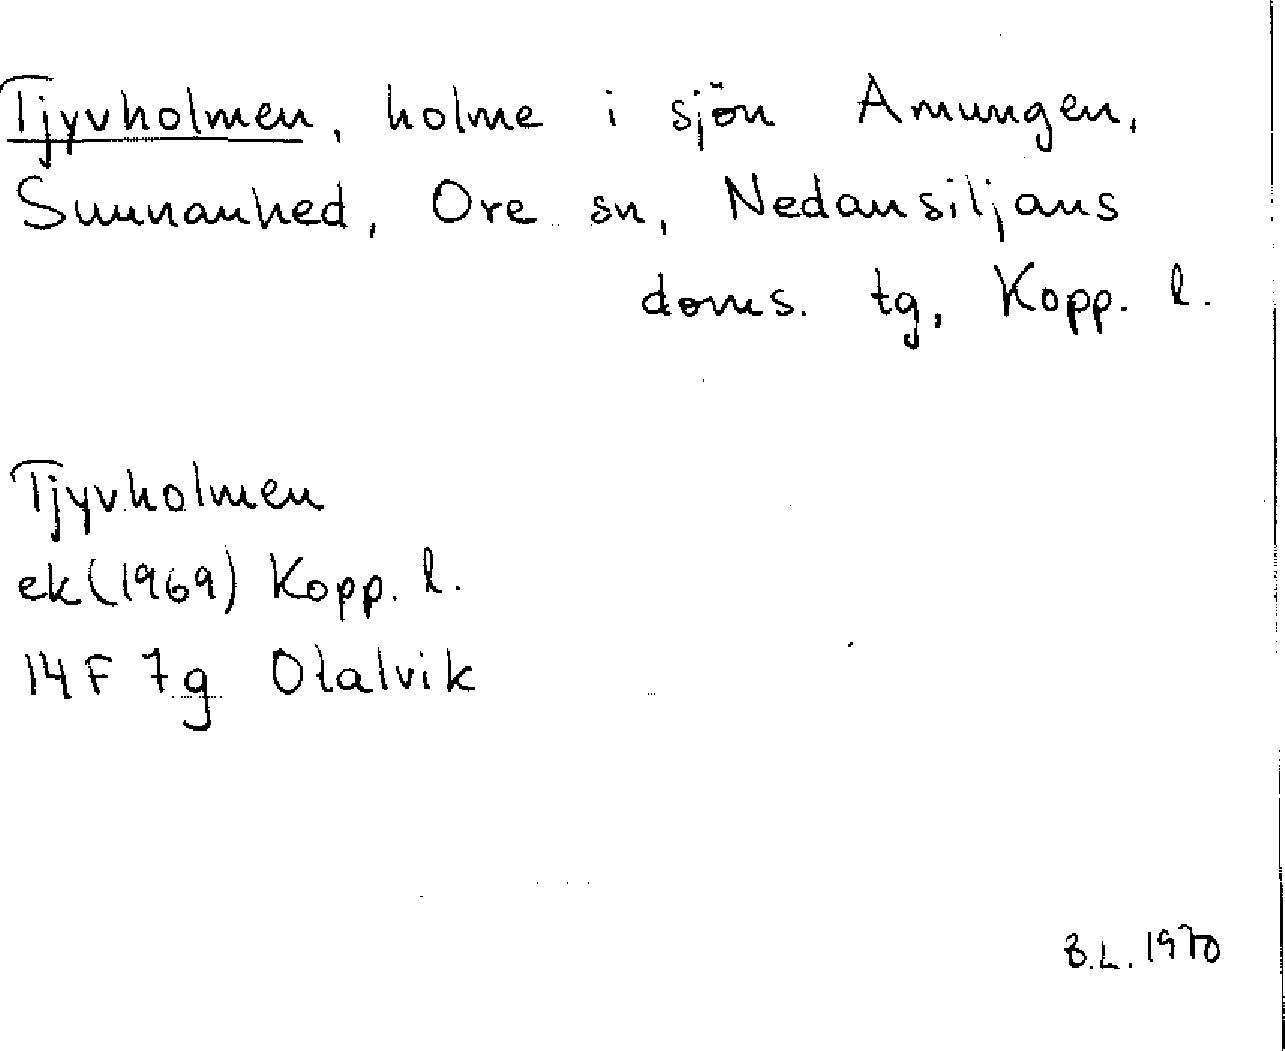 Tjyvholmen, holme i sjön Amungen,
Sunnanhed, Ore sn, Nedansiljans
doms. tg, Kopp. l.
Tjyvholmen
ek (1969) Kopp. l.
14F 7g Olalvik
B.L. 1970